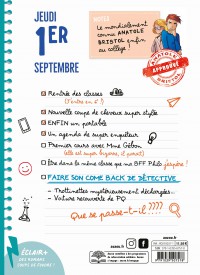 JEUDI
1ER
SEPTEMBRE
Le mondialement
connu ANATOLE
BRISTOL enfin
au collège !
ANATOLE
APPROUVÉ
BRISTOL
Rentrée des classes
(J'entre en 6e !)
Nouvelle coupe de cheveux super stylée
ENFIN un portable
Un agenda de super enquêteur
Premier cours avec Mme Gibon
(elle est super bizarre, il paraît)
Être dans la même classe que ma BFF Philo j'espère !
FAIRE SON COME BACK DE DÉTECTIVE
- Trottinettes mystérieusement déchargées.
- Voiture recouverte de PQ
Que se passe-t-il ????
ÉCLAIR+
DES ROMANS